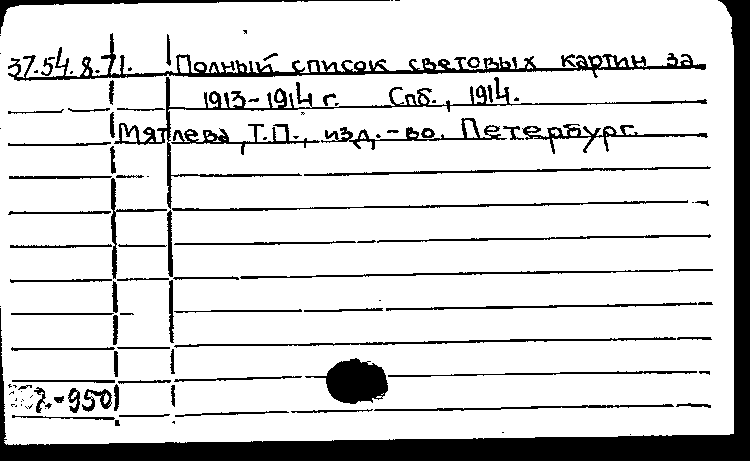 37.54.8.71. Полный список световых картин за
1913-1914 г. Спб., 1914.
Мятлева, Т.П., изд.-во. Петербург.
-950